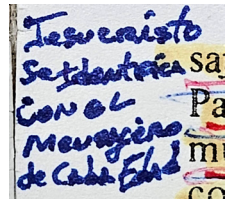 Jesucristo
Se Identifica
con el
Mensajero
de Cada Edad
sa
Pa
mu
co